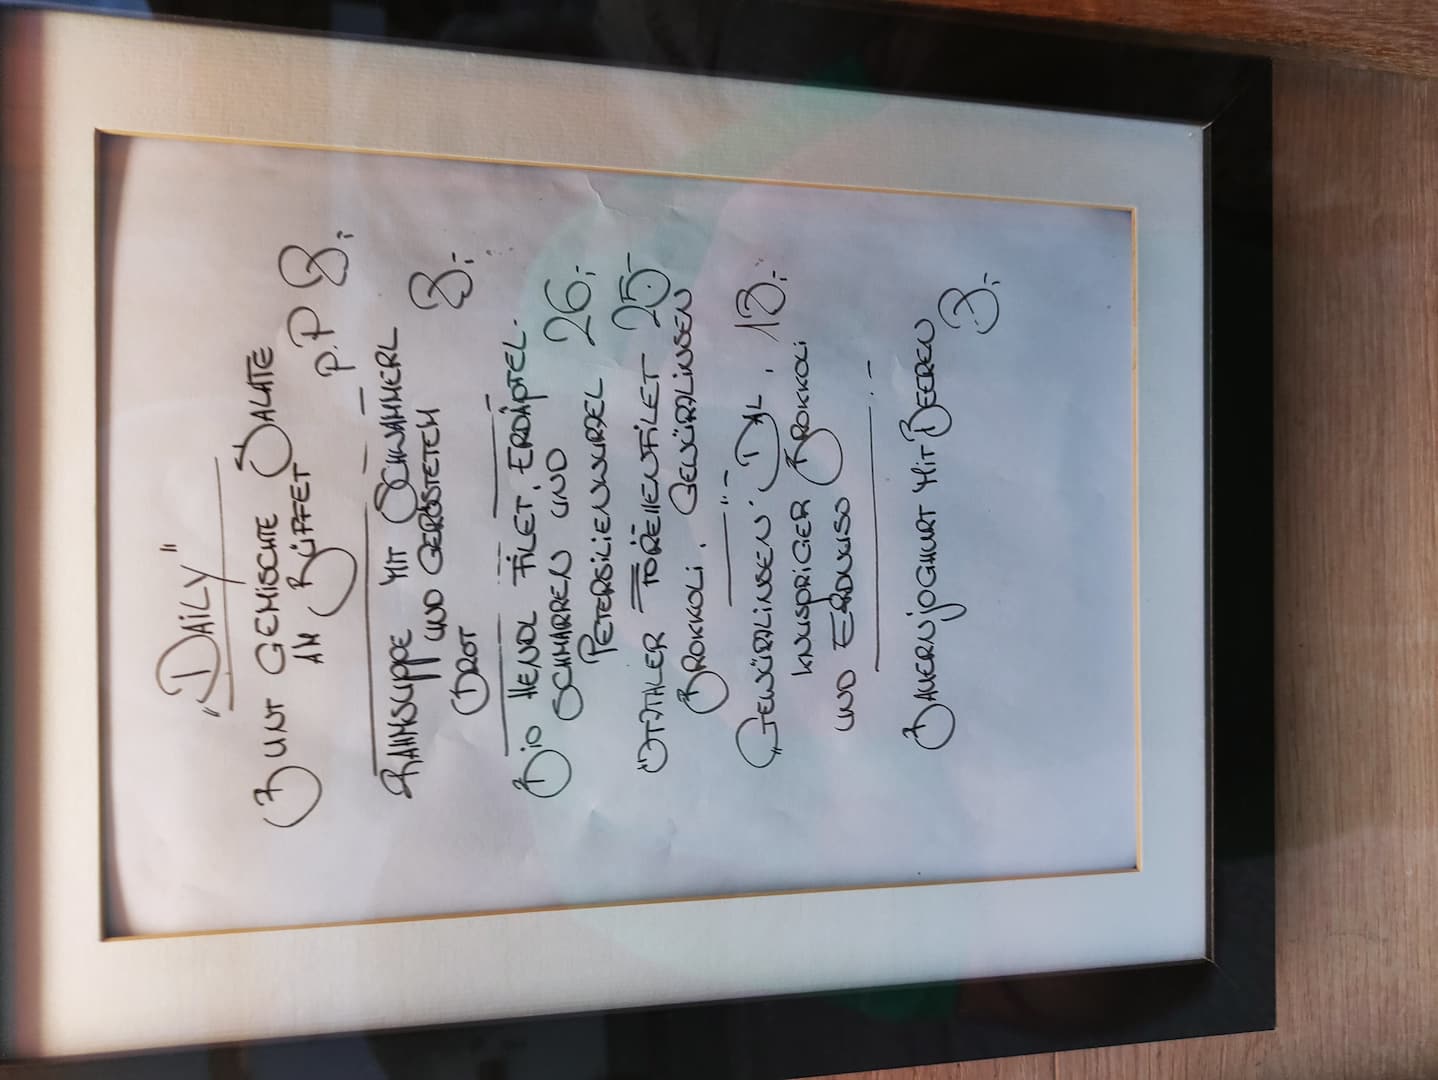 „DAiLY"
BUNT GEMISCHTE SALATE
AM BÜFFET p.P 8.-
RAHMSUPPE MIT SCHWAMMERL
UND GERÖSTETEM 8.-
BROT
BiO HENDL FiLET, ERDÄPFEL.
SCHMARREN UND 26.-
PETERSiLiENWURZEL
ÖTZTALER FORELLENFiLET 25.-
BROKKOLi, GEWÜRZLiNSEN
„GEWÜRZLiNSEN" DAL, 18.-
KNUSPRiGER BROKKOLi
UND ERDNUSS
BAUERNjOGHURT MiT BEEREN
8.-